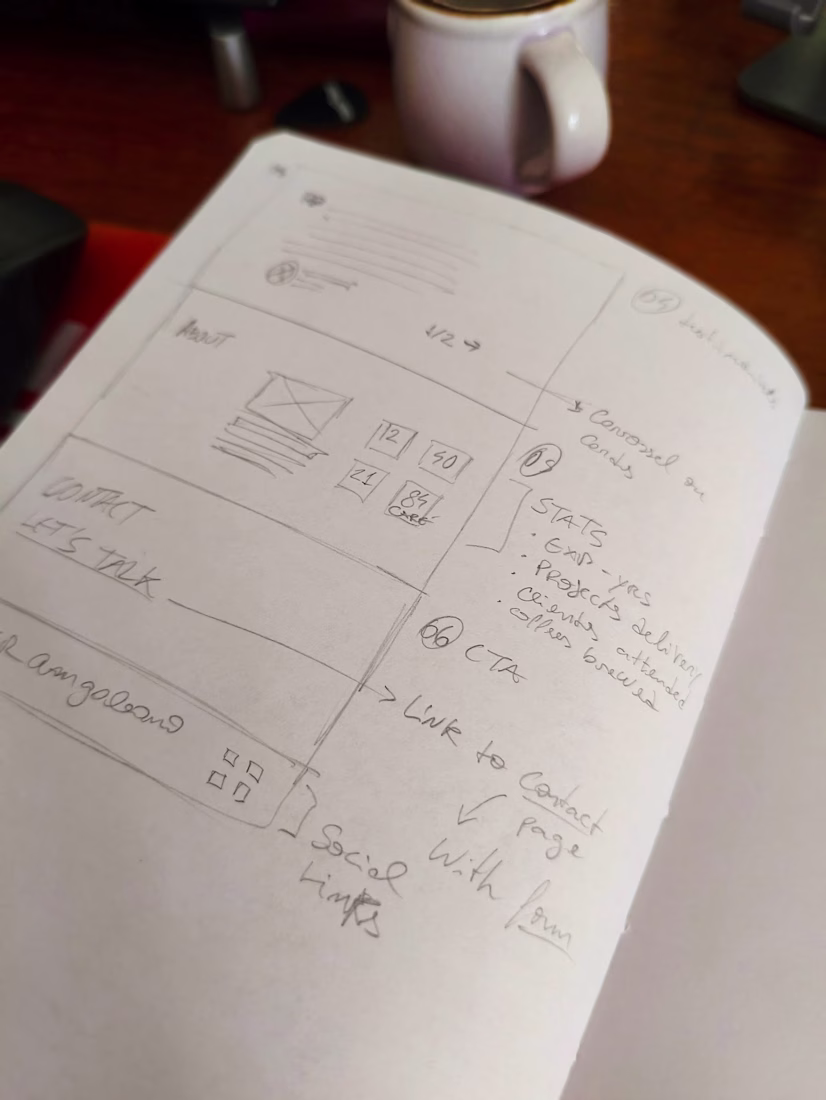 1/2 →
Carrossel on
Cards
ABOUT
12
50
21
84
05
STATS
· EXP - yrs
· PROjects delivery
· clients attended
· coffees brewed
CONTACT
LET'S TALK
06 CTA
Link to Contact
page
With form
Social
Links